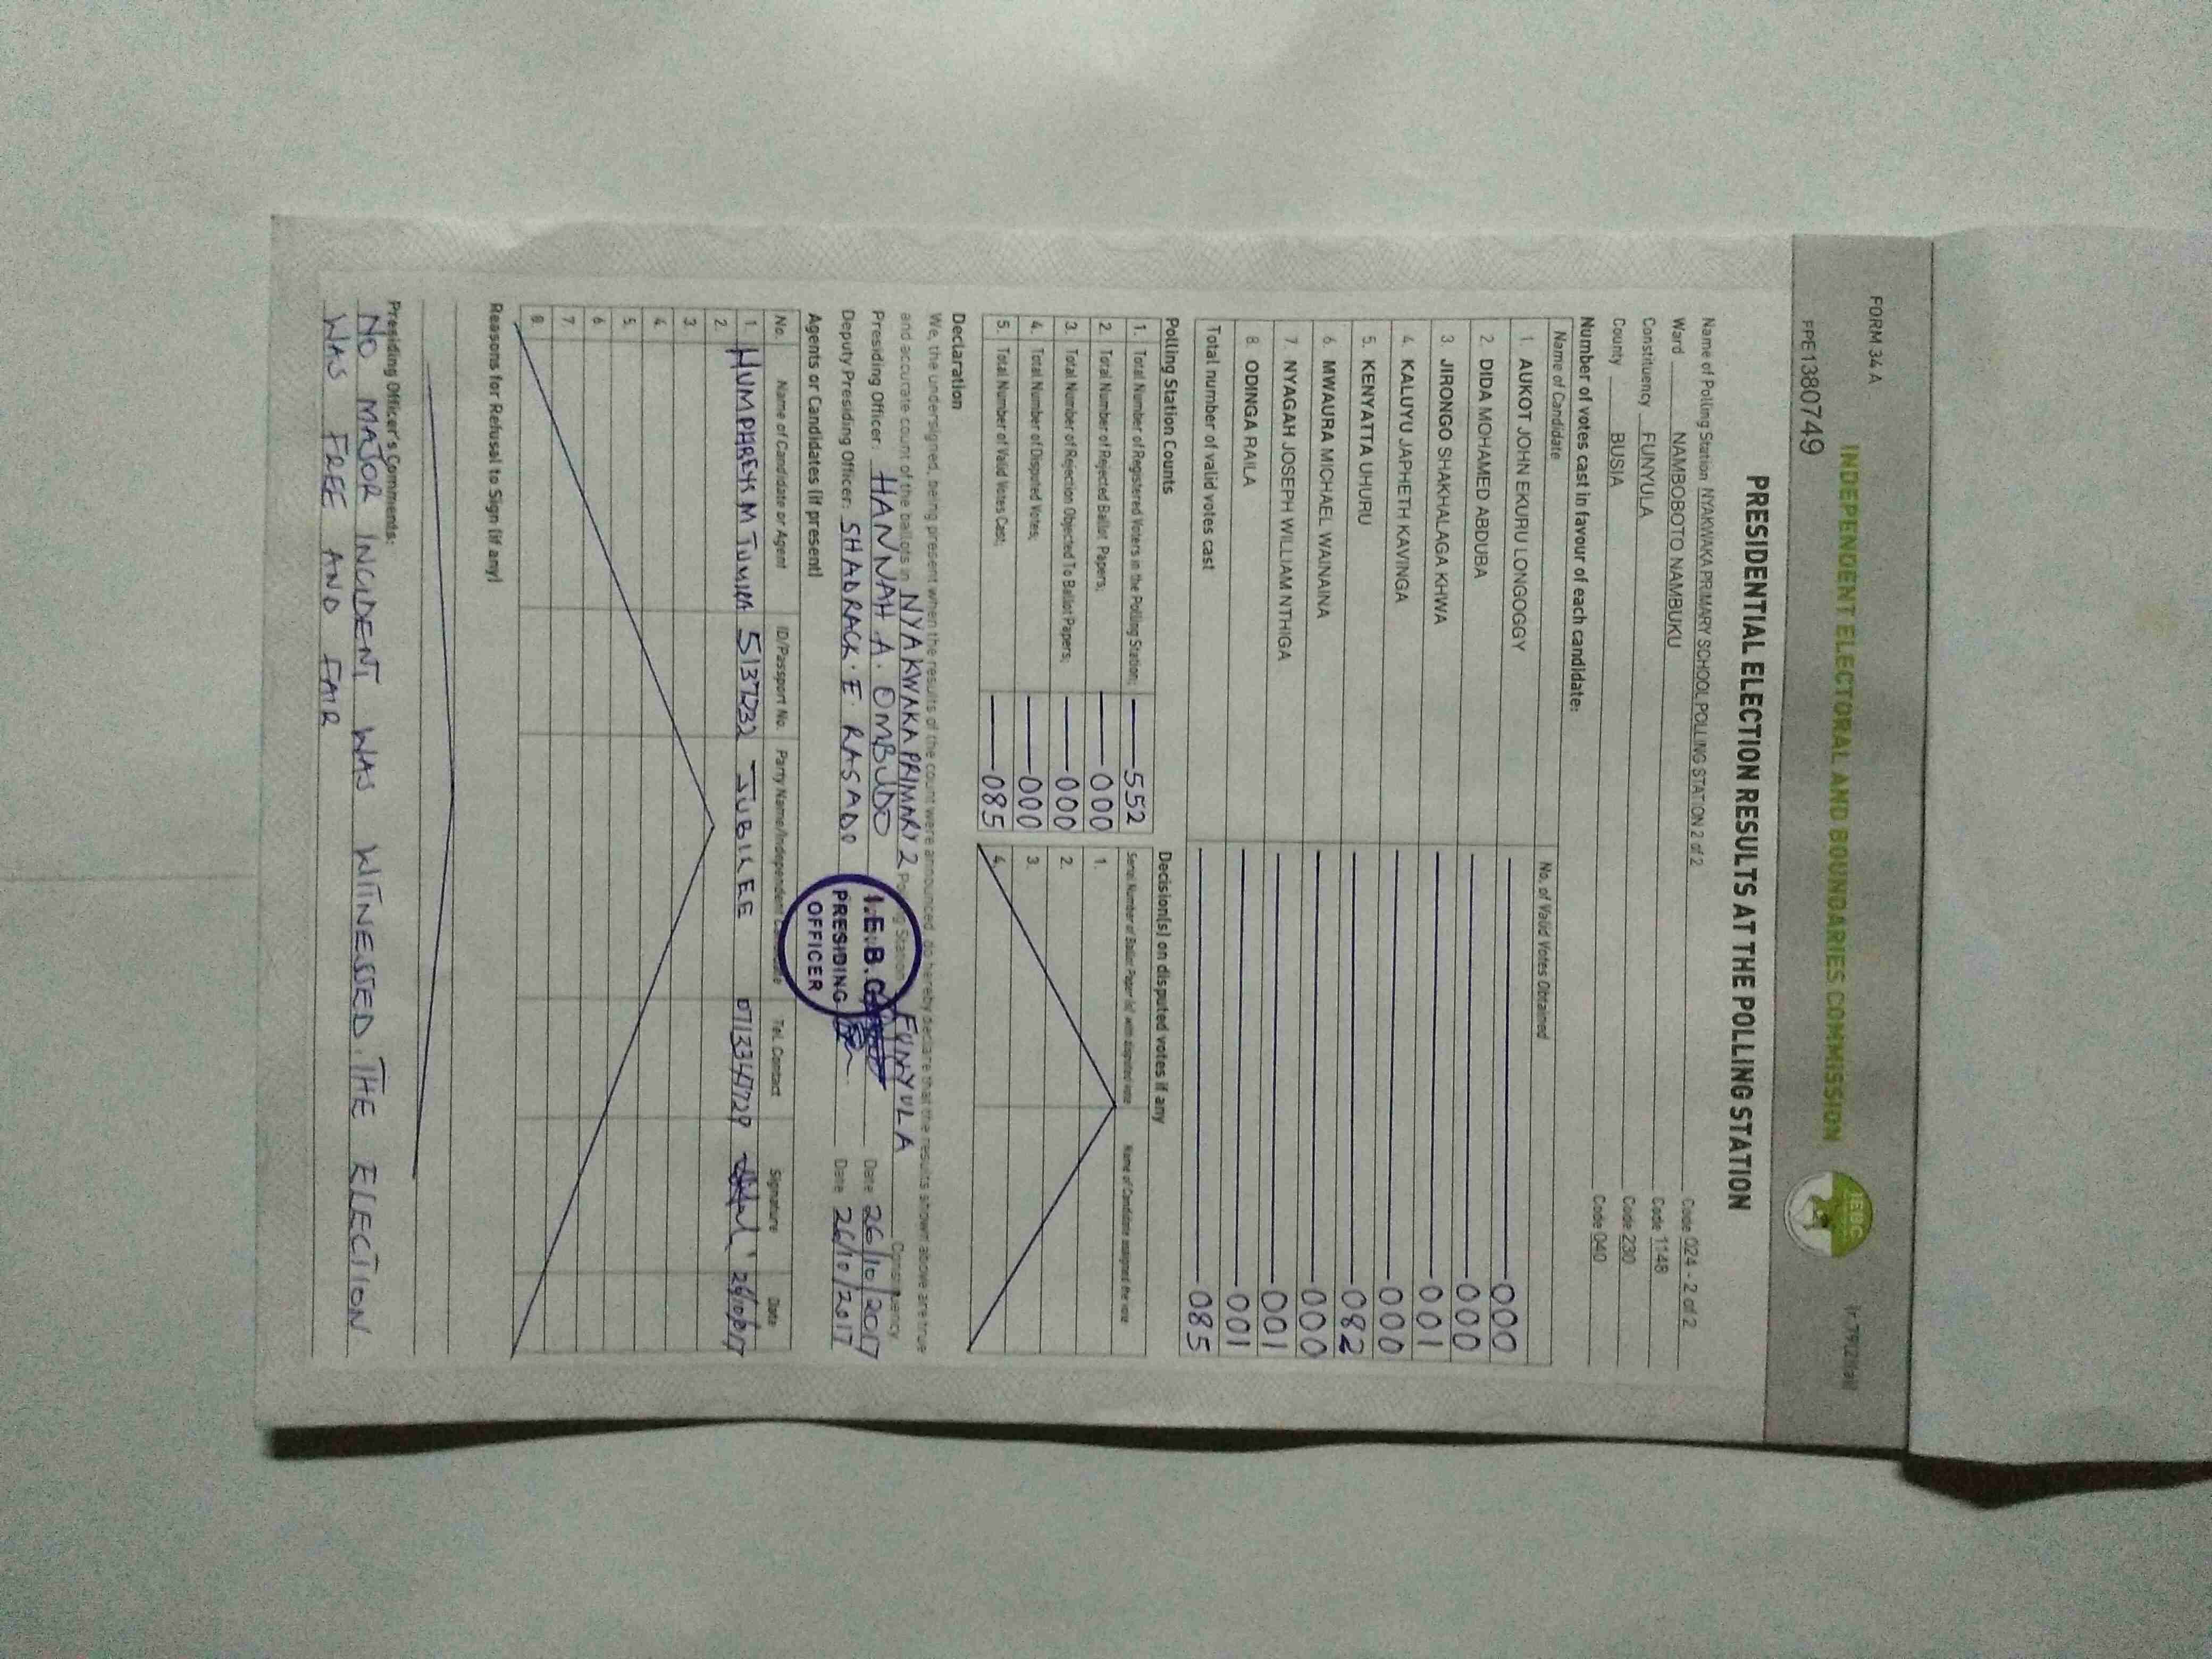 FORM 34 A
INDEPENDENT ELECTORAL AND BOUNDARIES COMMISSION
PPE1380749
IEBC
PRESIDENTIAL ELECTION RESULTS AT THE POLLING STATION
Name of Polling Station NYAKWAKA PRIMARY SCHOOL POLLING STATION 2 of 2 Code 024 - 2 of 2
Ward NAMBOBOTO NAMBUKU Code 1148
Constituency FUNYULA Code 230
County BUSIA Code 040
Number of votes cast in favour of each candidate:
Name of Candidate No. of Valid Votes Obtained
1. AUKOT JOHN EKURU LONGOGGY 000
2 DIDA MOHAMED ABDUBA 000
3. JIRONGO SHAKHALAGA KHWA 001
4. KALUYU JAPHETH KAVINGA 000
5. KENYATTA UHURU 082
6. MWAURA MICHAEL WAINAINA 000
7. NYAGAH JOSEPH WILLIAM NTHIGA 001
8. ODINGA RAILA 001
Total number of valid votes cast 085
Polling Station Counts
1. Total Number of Registered Voters in the Polling Station; 552
2. Total Number of Rejected Ballot Papers; 000
3. Total Number of Rejection Objected To Ballot Papers; 000
4. Total Number of Disputed Votes; 000
5. Total Number of Valid Votes Cast; 085
Decision(s) on disputed votes if any
Serial Number of Ballot Paper (s) with disputed vote Name of Candidate assigned the vote
1.
2.
3.
4.
Declaration
We, the undersigned, being present when the results of the count were announced, do hereby declare that the results shown above are true
and accurate count of the ballots in NYAKWAKA PRIMARY 2 Polling Station FUNYULA Constituency
Presiding Officer: HANNAH A. OMBUDO Date 26/10/2017
Deputy Presiding Officer: SHADRACK. E. RASADO Date 26/10/2017
I.E.B.C
PRESIDING
OFFICER
Agents or Candidates (if present)
No. Name of Candidate or Agent ID/Passport No. Party Name/Independent Candidate Tel. Contact Signature Date
1. HUMPHREYS M 5137232 JUBILEE 0713347729 26/10/2017
2.
3.
4.
5.
6.
7.
8.
Reasons for Refusal to Sign (if any)
Presiding Officer's Comments:
NO MAJOR INCIDENT WAS WITNESSED. THE ELECTION
WAS FREE AND FAIR